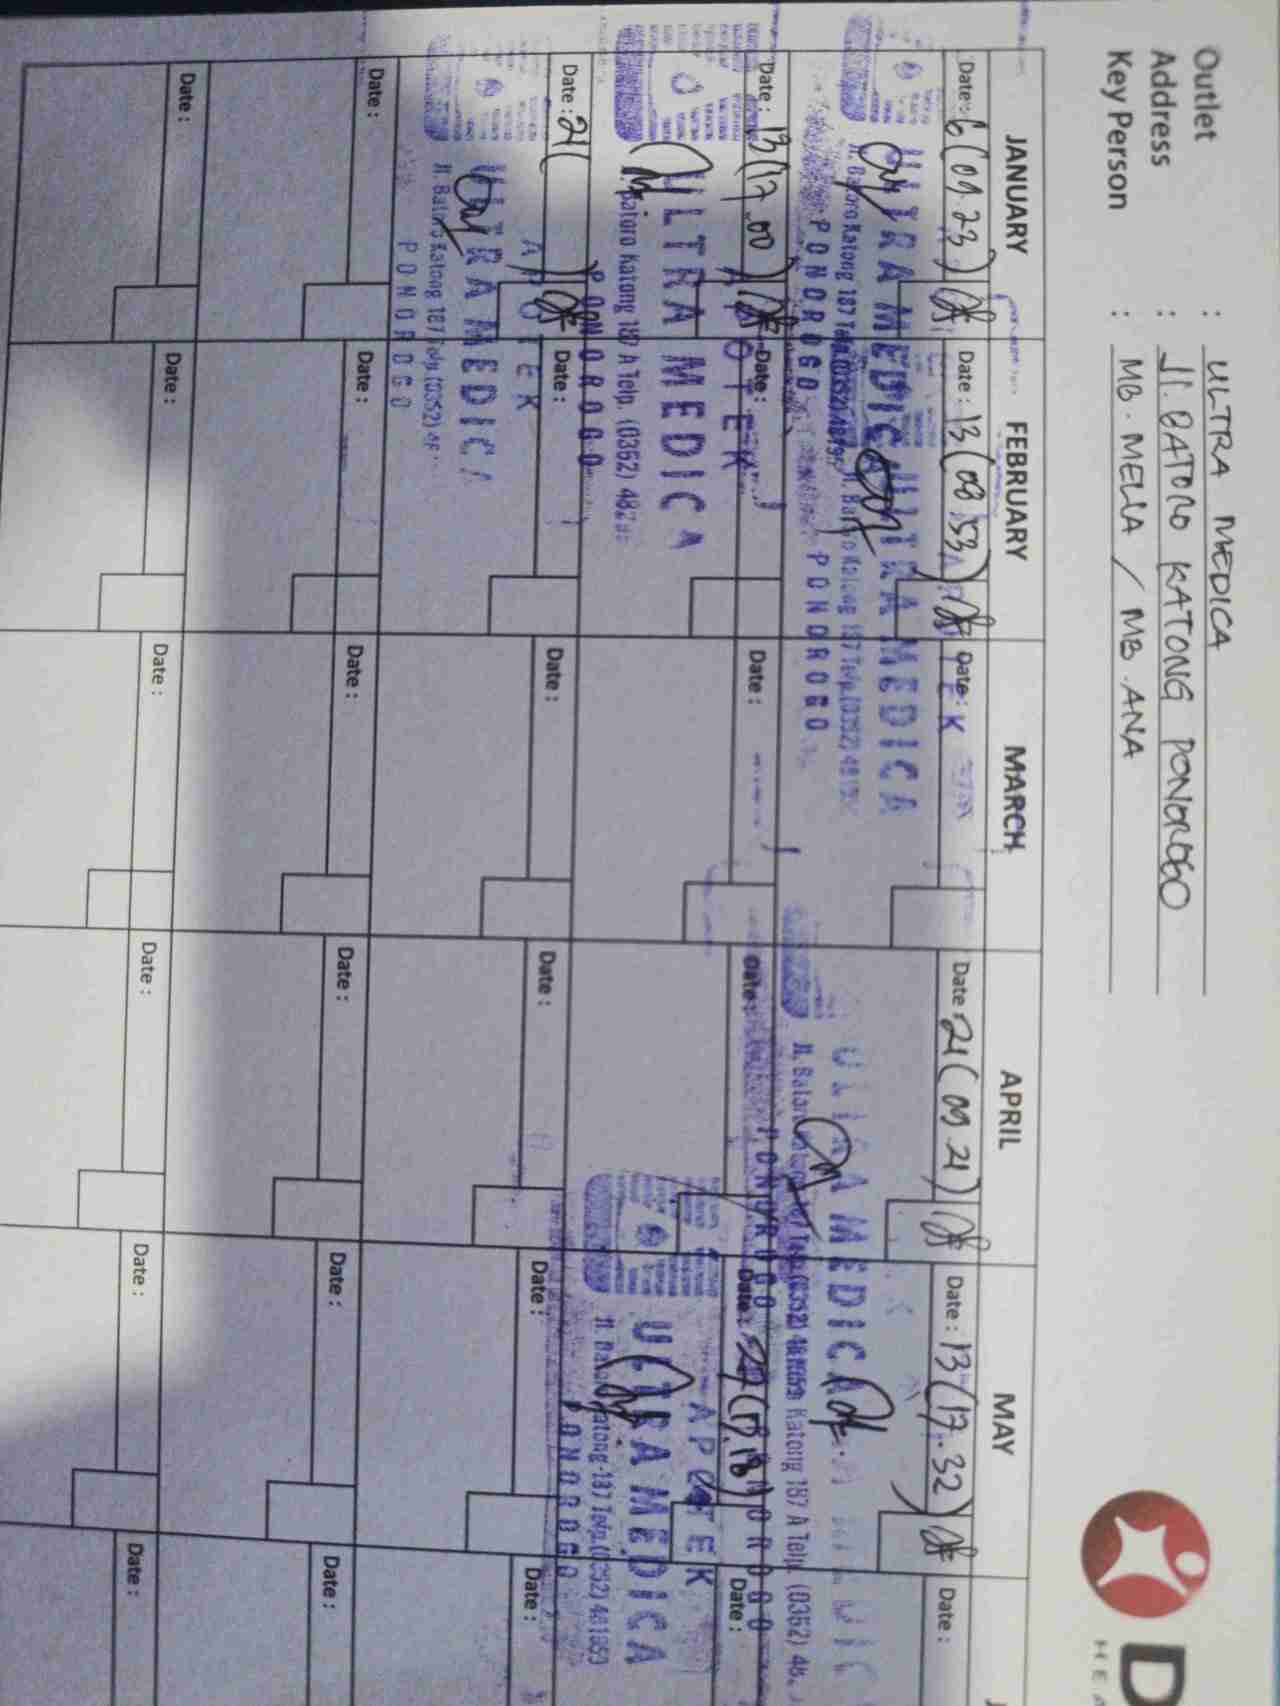 Outlet : ULTRA MEDICA
Address : Jl. BATORO KATONG PONOROGO
Key Person : MB. MELIA / MB. ANA
D
JANUARY FEBRUARY MARCH APRIL MAY
Date : 6 (09.23) Date : 13 (08.53) Date : Date : 21 (09.21) Date : 13 (17.32) Date :
APOTEK
ULTRA MEDICA ULTRA MEDICA ULTRA MEDICA
Jl. Batoro Katong 187 Jl. Batoro Katong 187 Telp. (0352) Jl. Batoro Katong 187 Telp. (0352) Katong 187 A Telp. (0352)
PONOROGO PONOROGO PONOROGO PONOROGO
Date : 13 (17.00) Date : Date : Date : Date : (17.18) Date :
APOTEK APOTEK
ULTRA MEDICA ULTRA MEDICA
Batoro Katong 187 A Telp. (0352) Jl. Batoro Katong 187 Telp. (0352) 481959
PONOROGO PONOROGO
Date : 21 ( ) Date : Date : Date : Date : Date :
APOTEK
ULTRA MEDICA
Jl. Batoro Katong 187 Telp. (0352)
PONOROGO
Date : Date : Date : Date : Date : Date :
Date : Date : Date : Date : Date : Date :